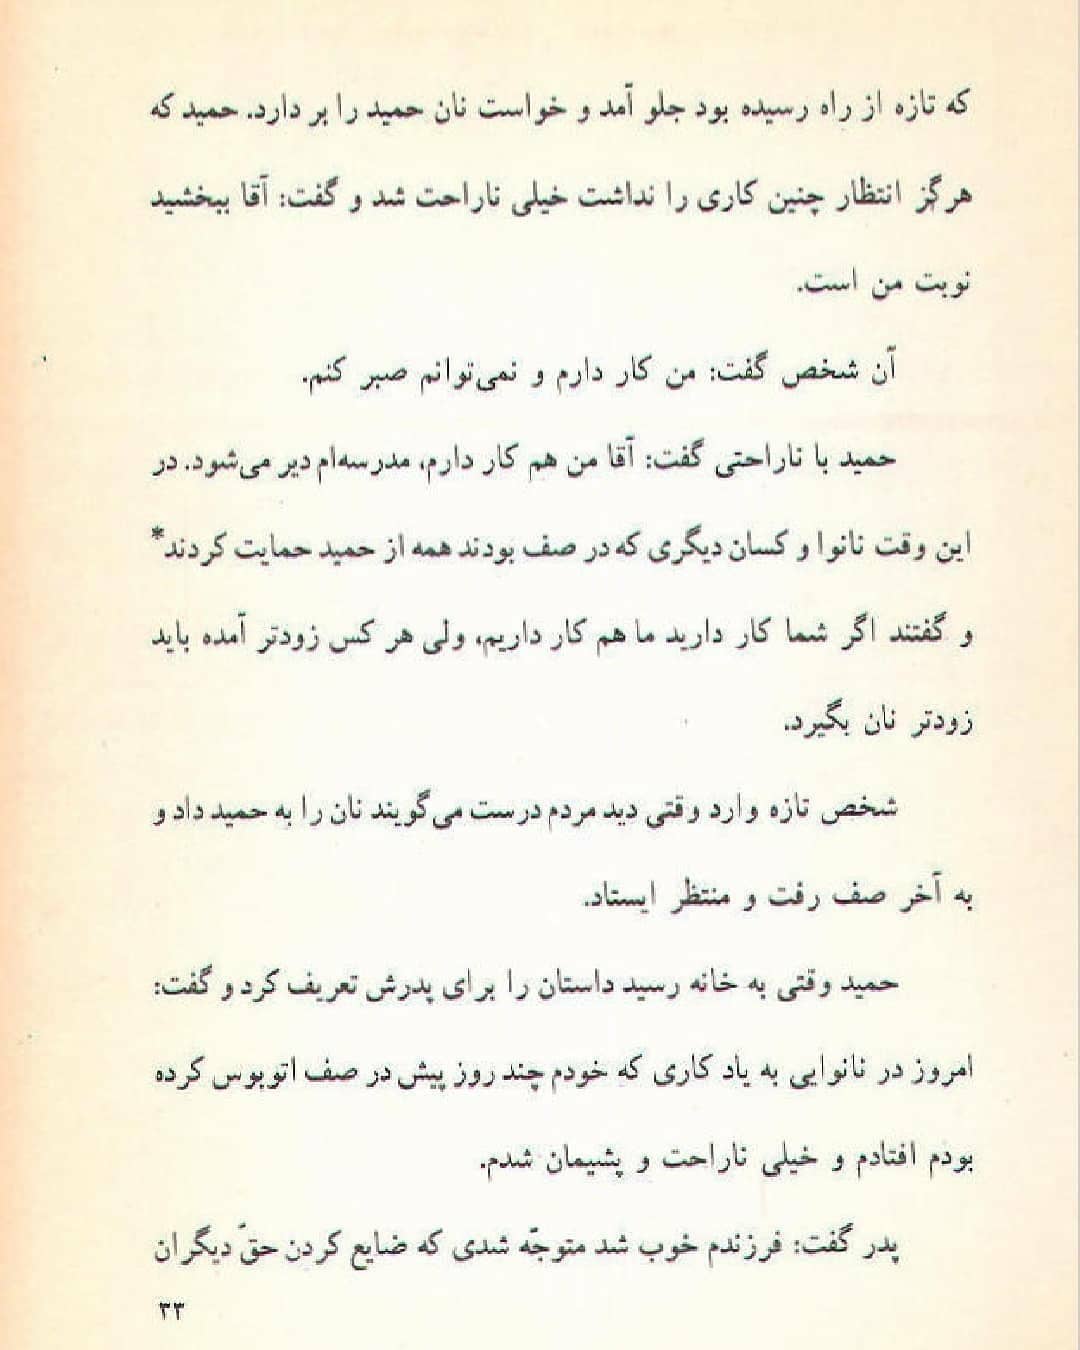 که تازه از راه رسیده بود جلو آمد و خواست نان حمید را بر دارد. حمید که
هرگز انتظار چنین کاری را نداشت خیلی ناراحت شد و گفت: آقا ببخشید
نوبت من است.
آن شخص گفت: من کار دارم و نمی‌توانم صبر کنم.
حمید با ناراحتی گفت: آقا من هم کار دارم، مدرسه‌ام دیر می‌شود. در
این وقت نانوا و کسان دیگری که در صف بودند همه از حمید حمایت کردند*
و گفتند اگر شما کار دارید ما هم کار داریم، ولی هر کس زودتر آمده باید
زودتر نان بگیرد.
شخص تازه وارد وقتی دید مردم درست می‌گویند نان را به حمید داد و
به آخر صف رفت و منتظر ایستاد.
حمید وقتی به خانه رسید داستان را برای پدرش تعریف کرد و گفت:
امروز در نانوایی به یاد کاری که خودم چند روز پیش در صف اتوبوس کرده
بودم افتادم و خیلی ناراحت و پشیمان شدم.
پدر گفت: فرزندم خوب شد متوجّه شدی که ضایع کردن حقّ دیگران
۳۳